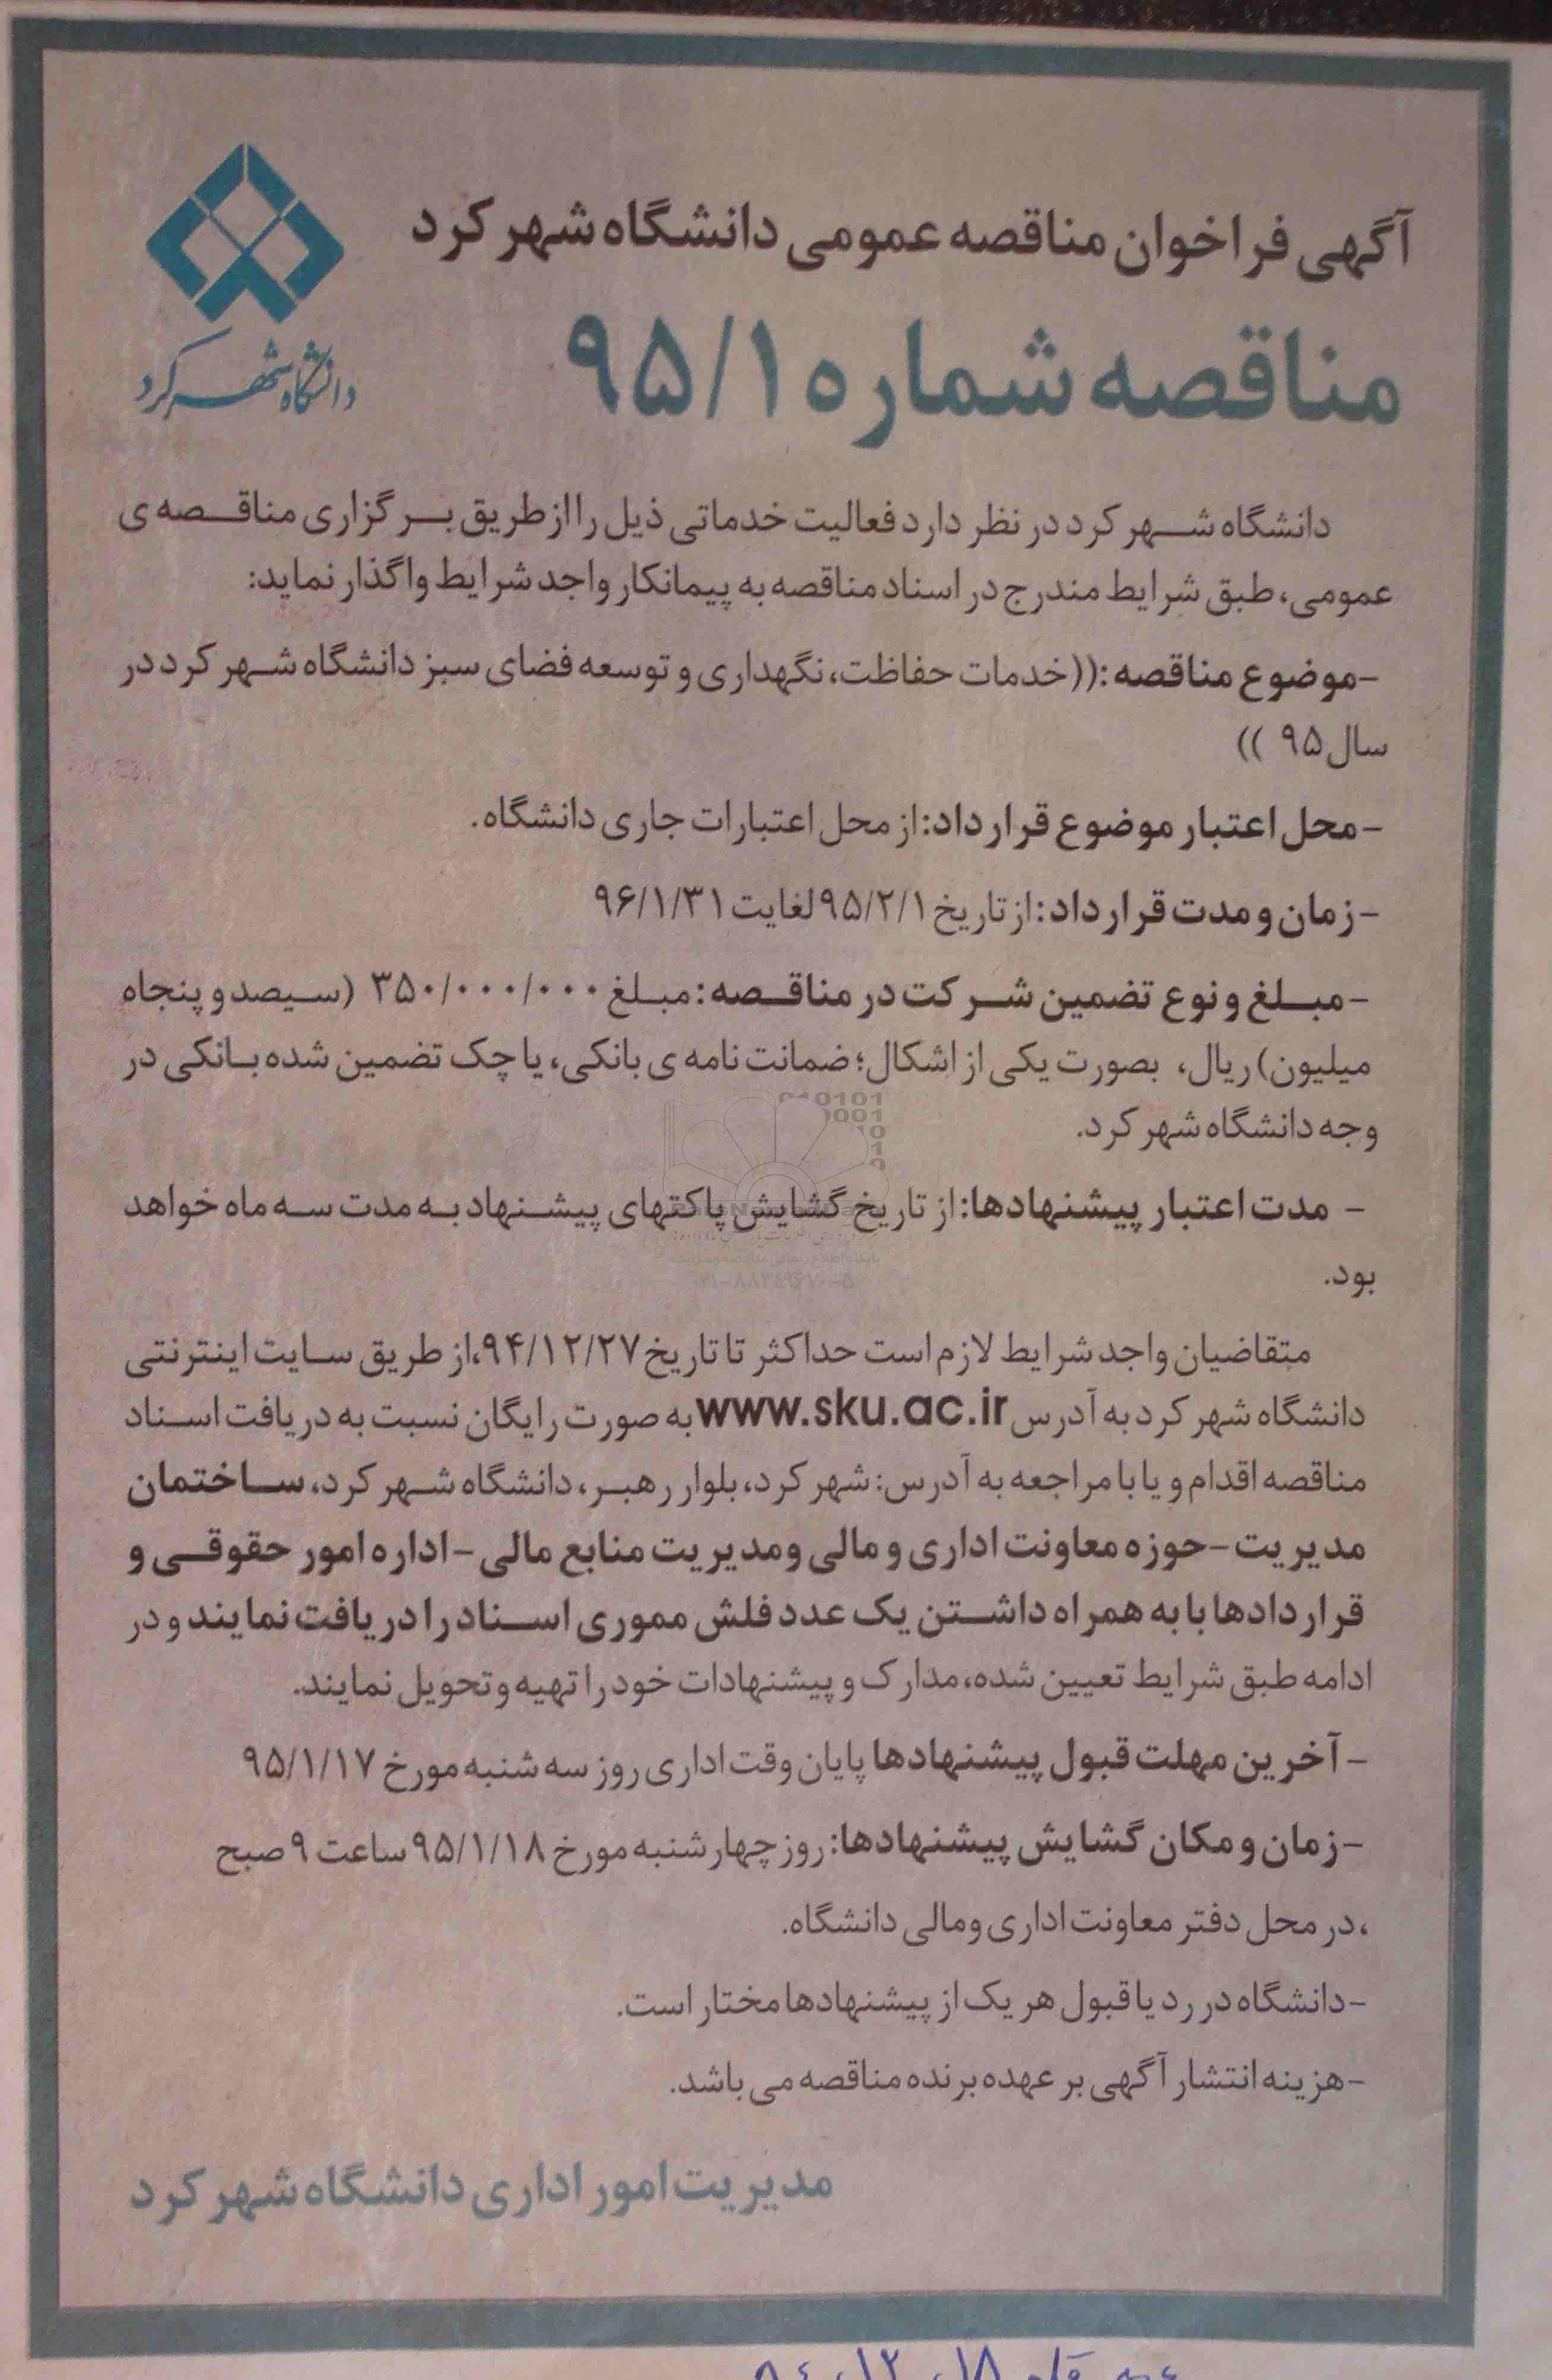 آگهی فراخوان مناقصه عمومی دانشگاه شهرکرد
دانشگاه شهرکرد
مناقصه شماره ۹۵/۱
دانشگاه شهرکرد در نظر دارد فعالیت خدماتی ذیل را از طریق برگزاری مناقصه ی
عمومی، طبق شرایط مندرج در اسناد مناقصه به پیمانکار واجد شرایط واگذار نماید:
-موضوع مناقصه:((خدمات حفاظت، نگهداری و توسعه فضای سبز دانشگاه شهرکرد در
سال ۹۵ ))
-محل اعتبار موضوع قرارداد: از محل اعتبارات جاری دانشگاه.
-زمان و مدت قرارداد: از تاریخ ۹۵/۲/۱ لغایت ۹۶/۱/۳۱
-مبلغ و نوع تضمین شرکت در مناقصه: مبلغ ۳۵۰/۰۰۰/۰۰۰ (سیصد و پنجاه
میلیون) ریال، بصورت یکی از اشکال؛ ضمانت نامه ی بانکی، یا چک تضمین شده بانکی در
وجه دانشگاه شهرکرد.
- مدت اعتبار پیشنهادها: از تاریخ گشایش پاکتهای پیشنهاد به مدت سه ماه خواهد
بود.
متقاضیان واجد شرایط لازم است حداکثر تا تاریخ ۹۴/۱۲/۲۷،از طریق سایت اینترنتی
دانشگاه شهرکرد به آدرس www.sku.ac.ir به صورت رایگان نسبت به دریافت اسناد
مناقصه اقدام و یا با مراجعه به آدرس: شهرکرد، بلوار رهبر، دانشگاه شهرکرد، ساختمان
مدیریت-حوزه معاونت اداری و مالی ومدیریت منابع مالی-اداره امور حقوقی و
قراردادها با به همراه داشتن یک عدد فلش مموری اسناد را دریافت نمایند و در
ادامه طبق شرایط تعیین شده، مدارک و پیشنهادات خود را تهیه و تحویل نمایند.
- آخرین مهلت قبول پیشنهادها پایان وقت اداری روز سه شنبه مورخ ۹۵/۱/۱۷
-زمان و مکان گشایش پیشنهادها: روز چهارشنبه مورخ ۹۵/۱/۱۸ ساعت ۹ صبح
، در محل دفتر معاونت اداری ومالی دانشگاه.
-دانشگاه در رد یا قبول هر یک از پیشنهادها مختار است.
-هزینه انتشار آگهی بر عهده برنده مناقصه می باشد.
مدیریت امور اداری دانشگاه شهرکرد